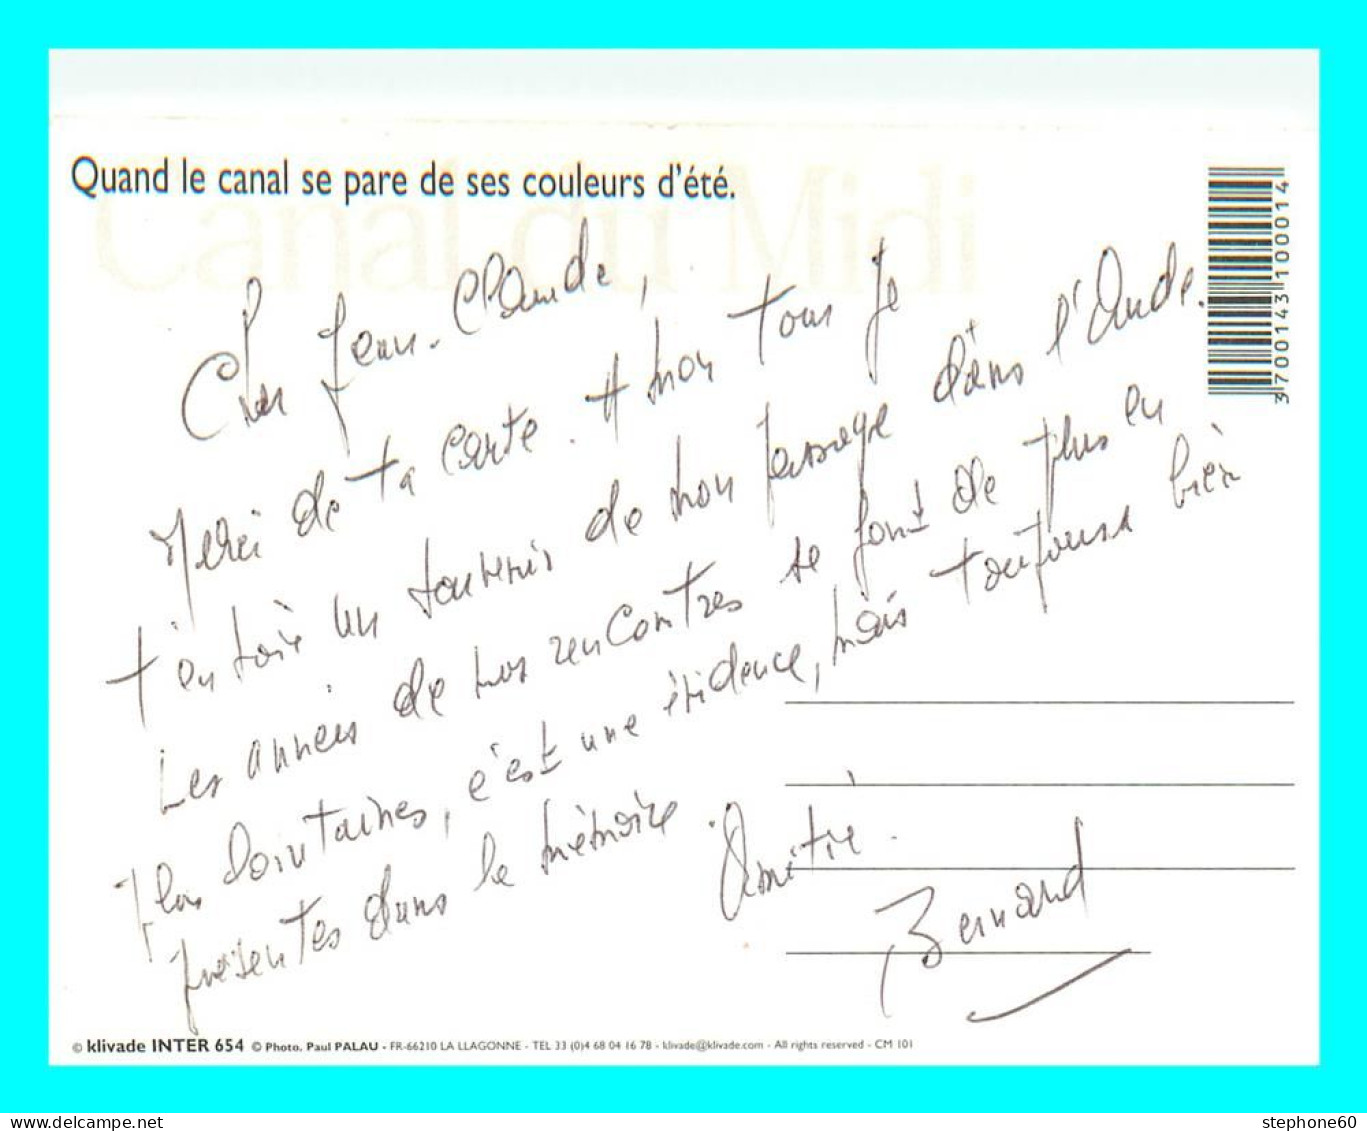 Quand le canal se pare de ses couleurs d'été.
Canal du Midi
3 700143 100014
Cher Jean-Claude,
Merci de ta carte. A mon tour je
t'envoie un souvenir de mon passage dans l'Aude.
Les années de nos rencontres se font de plus en
plus lointaines, c'est une évidence, mais toujours bien
présentes dans la mémoire.
Amitié.
Bernard
© klivade INTER 654 © Photo. Paul PALAU - FR-66210 LA LLAGONNE - TEL 33 (0)4 68 04 16 78 - klivade@klivade.com - All rights reserved - CM 101
stephone60